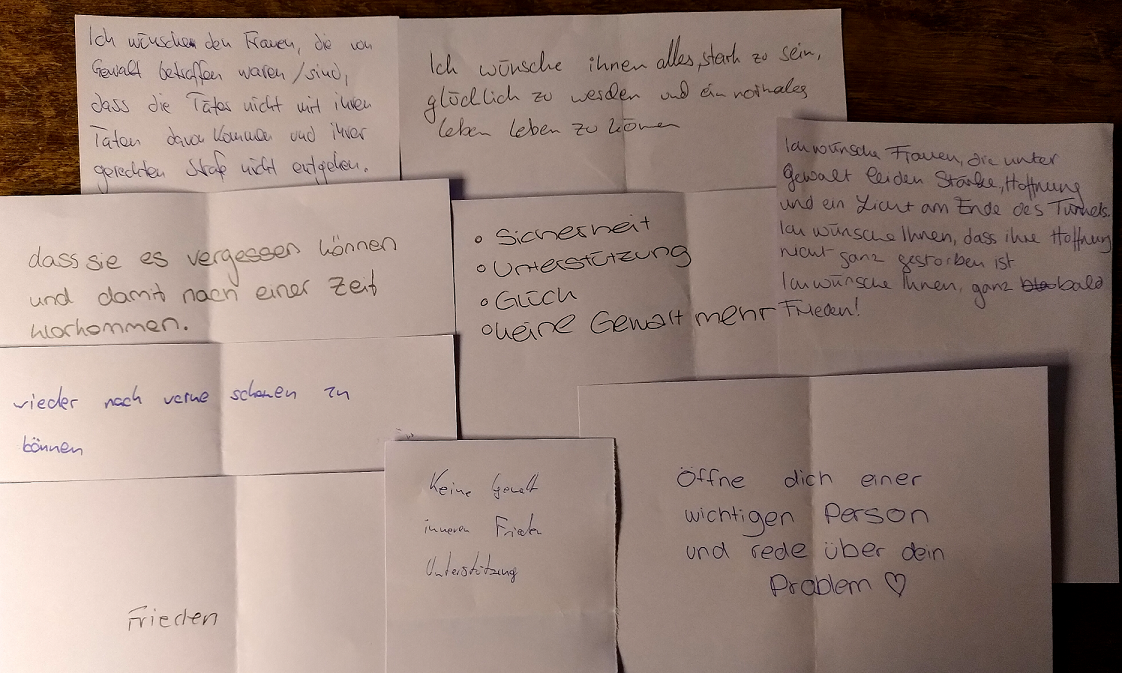 Ich wünsche den Frauen, die von
Gewalt betroffen waren /sind,
dass die Täter nicht mit ihren
Taten davon kommen und ihrer
gerechten Strafe nicht entgehen.
Ich wünsche ihnen alles, stark zu sein,
glücklich zu werden und ein normales
leben leben zu können
Ich wünsche Frauen, die unter
Gewalt leiden Stärke, Hoffnung
und ein Licht am Ende des Tunnels.
Ich wünsche Ihnen, dass ihre Hoffnung
nicht ganz gestorben ist
Ich wünsche Ihnen, ganz bald
Frieden!
dass sie es vergessen können
und damit nach einer Zeit
klarkommen.
• Sicherheit
• Unterstützung
• Glück
• keine Gewalt mehr
wieder nach vorne schauen zu
können
Keine Gewalt
inneren Frieden
Unterstützung
Öffne dich einer
wichtigen Person
und rede über dein
Problem ♡
Frieden